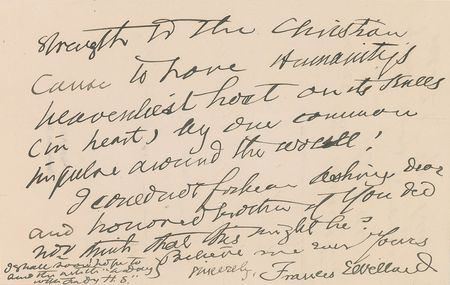 strength to the Christian
Cause to have Humanity's
heavenliest host on its knees
(in heart) by one common
impulse around the world!
I could not forbear asking dear
and honored brother if you did
not think that this might be?
Believe me ever yours
sincerely, Frances E. Willard
I shall soon hope to
and the a day
with Lady H. S.